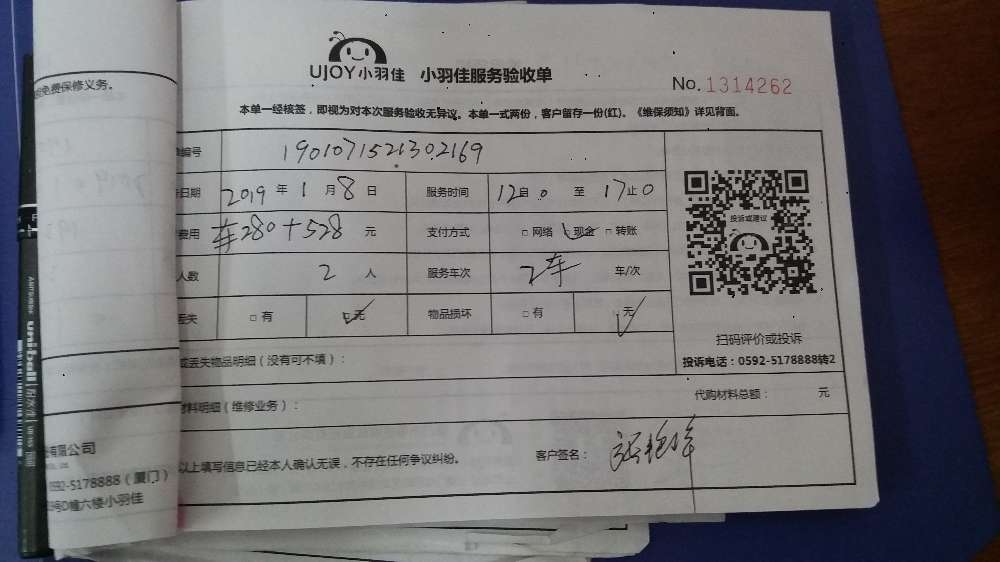 免费保修义务。
UJOY小羽佳 小羽佳服务验收单
No. 1314262
本单一经核签，即视为对本次服务验收无异议。本单一式两份，客户留存一份(红)。《维保须知》详见背面。
编号 1901071521302169
日期 2019 年 1 月 8 日 服务时间 12自0 至 17止0
费用 车280+528 元 支付方式 □ 网络 □ 现金 □ 转账
人数 2 人 服务车次 2车 车/次
丢失 □ 有 □ 无 物品损坏 □ 有 □ 无
投诉或建议
扫码评价或投诉
投诉电话：0592-5178888转2
或丢失物品明细（没有可不填）：
材料明细（维修业务）： 代购材料总额： 元
以上填写信息已经本人确认无误，不存在任何争议纠纷。 客户签名：
有限公司
0592-5178888（厦门）
号D幢六楼小羽佳
uni-ball